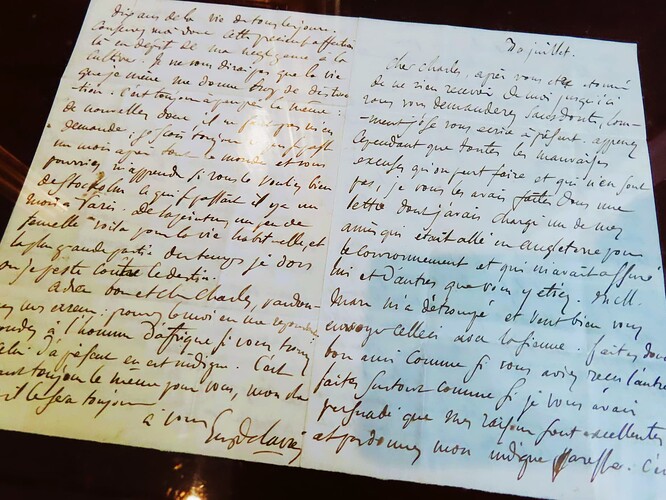 30 juillet.
Cher Charles, après vous être étonné
de ne rien recevoir de moi jusqu'ici
vous vous demanderez sans doute, com-
ment je vous écris à présent. apprenez
cependant que toutes les mauvaises
excuses qu'on peut faire et qui n'en sont
pas, je vous les avais faites dans une
lettre dont j'avais chargé un de mes
amis qui était allé en Angleterre pour
le couronnement et qui m'avait assuré
lui et d'autres que vous y étiez.
m'a détrompé et veut bien vous
envoyer celle ci avec la sienne. faites donc
bon ami comme si vous aviez reçu l'autre
faites surtout comme si je vous avais
persuadé que mes raisons sont excellentes
et pardonnez mon indigne paresse. C'e
dix ans de la vie de tous les jours.
Conservez moi donc cette précieuse affection
là en dépit de ma négligence à la
cultiver. Je ne vous dirai pas que la vie
que je mène me donne trop de distrac
tion. c'est toujours à peu près la même :
de nouvelles donc, il ne faut pas m'en
demander : je sais toujours ce qui se passe
un mois après tout le monde et vous
pourriez m'apprendre si vous le voulez bien
de Stockholm ce qui se passait il y a un
mois à Paris. De la peinture, un peu de
femelle voilà pour la vie habituelle, et
la plus grande partie du temps je dors
ou je peste contre le destin.
adieu bon et cher Charles, pardon-
mes erreurs. prouvez le moi en me répondre
à l'homme d'afrique si vous
à présent en est indigne. C'est
toujours le même pour vous, mon
il le sera toujours
à vous
Eug Delacroix